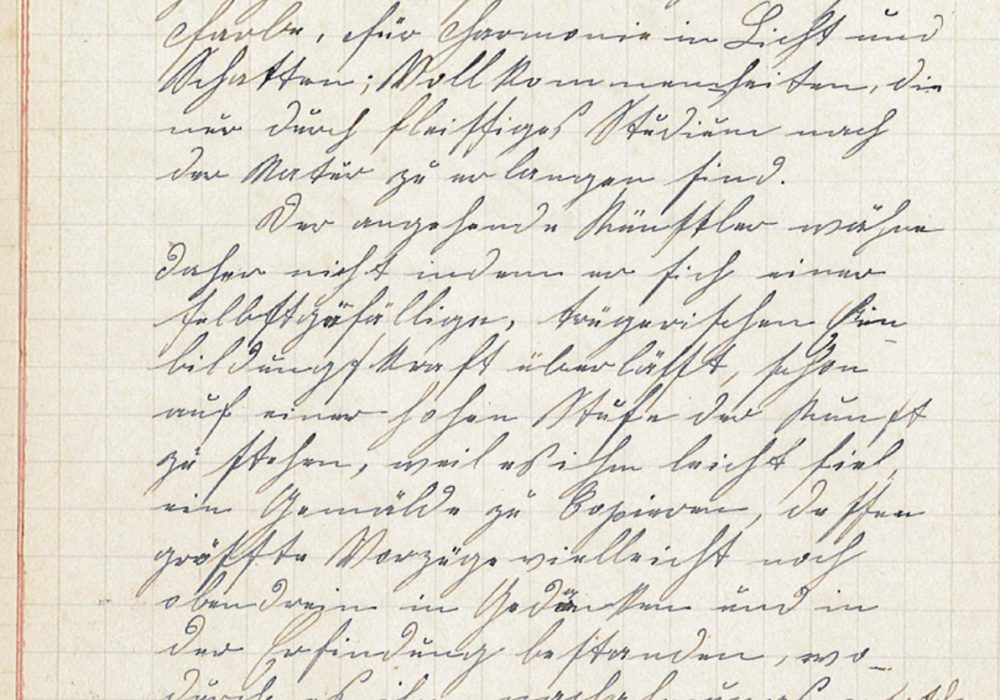 Farbe, für Harmonie in Licht und
Schatten; Vollkommenheiten, die
nur durch fleissiges Studium nach
der Natur zu erlangen sind.
Der angehende Künstler wähne
daher nicht indem er sich einer
selbstgefällige, trügerischen Ein-
bildungskraft überlässt, schon
auf einer hohen Stufe der Kunst
zu stehen, weil es ihm leicht fiel,
ein Gemälde zu Copieren, dessen
grösste Vorzüge vielleicht noch
obendrein in Gedanken und in
der Erfindung bestanden, wo-
durch es ihm